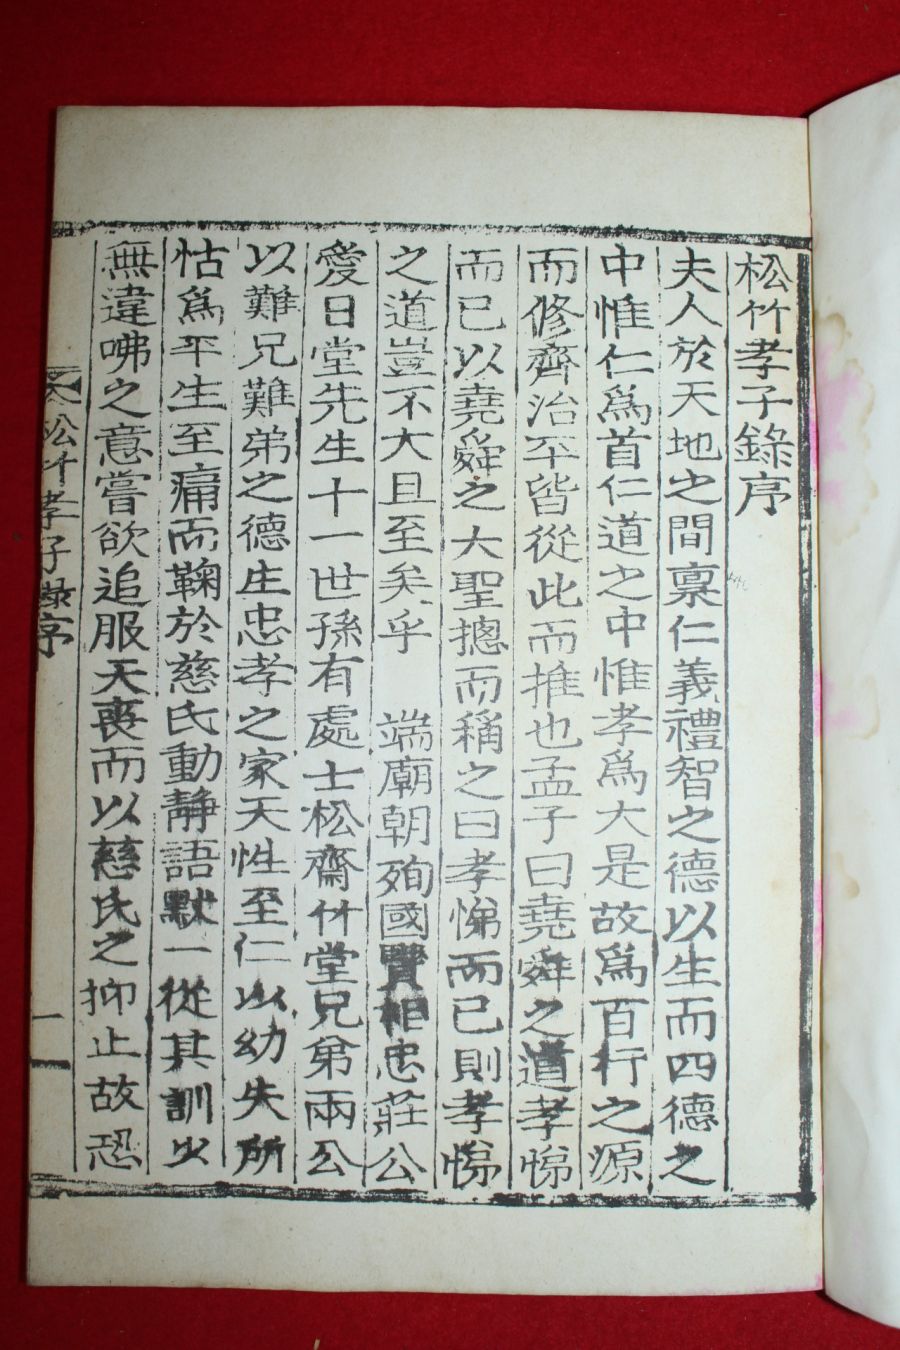 松竹孝子錄序
夫人於天地之間稟仁義禮智之德以生而四德之
中惟仁爲首仁道之中惟孝爲大是故爲百行之源
而修齊治平皆從此而推也孟子曰堯舜之道孝悌
而已以堯舜之大聖摠而稱之曰孝悌而已則孝悌
之道豈不大且至矣乎　端廟朝殉國賢相忠莊公
愛日堂先生十一世孫有處士松齋竹堂兄弟兩公
以難兄難弟之德生忠孝之家天性至仁以幼失所
怙爲平生至痛而鞠於慈氏動靜語默一從其訓以
無違咈之意嘗欲追服天喪而以慈氏之抑止故恐
松竹孝子錄序
一